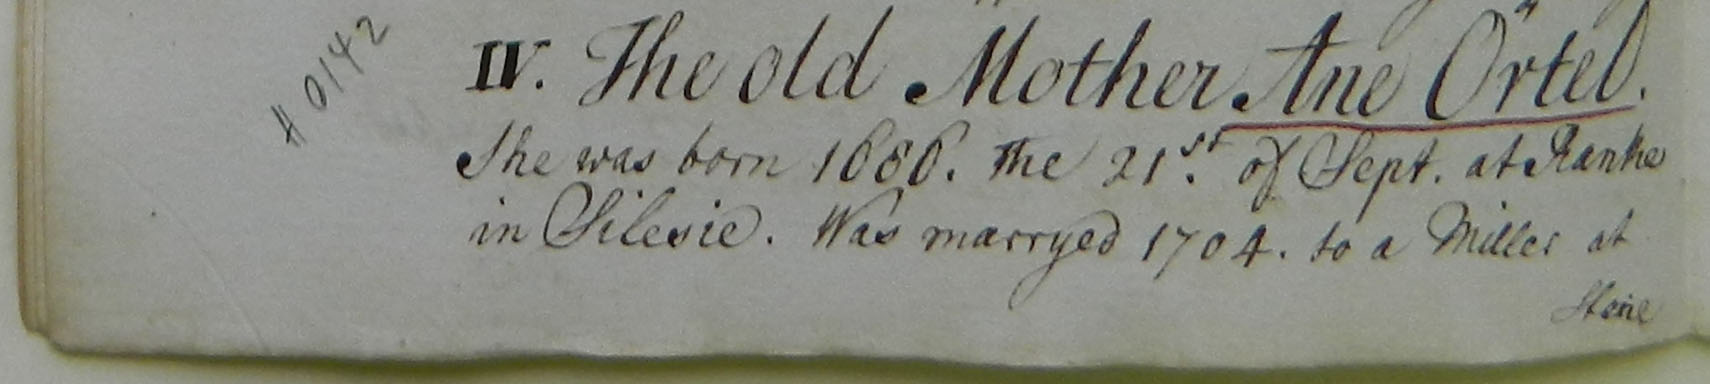 # 0142
IV. The old Mother Ane Örtel.
She was born 1686. the 21st. of Sept. at Ranke
in Silesie. Was marryed 1704. to a Miller at